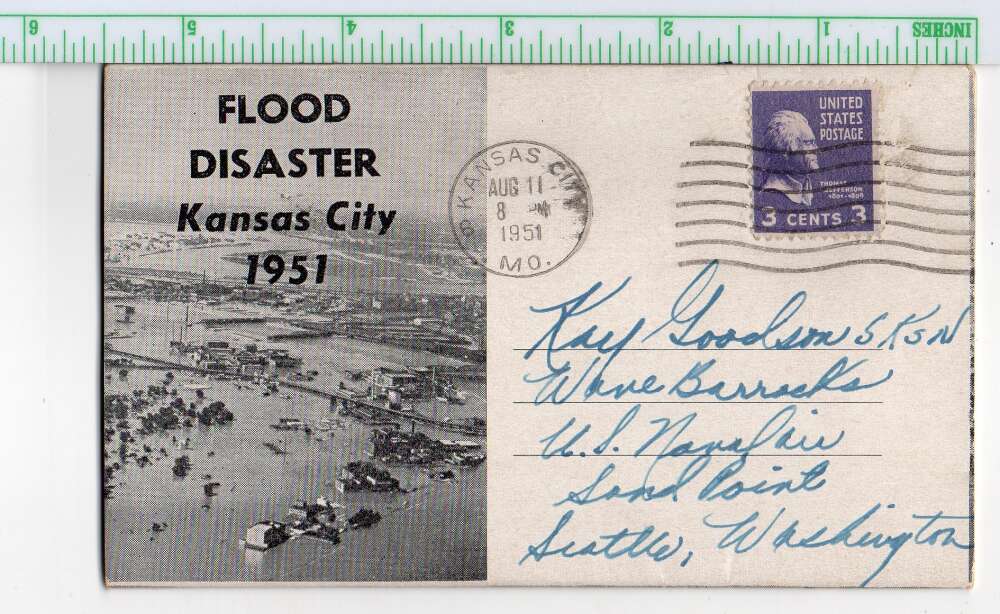 INCHES 1 2 3 4 5 6
FLOOD
DISASTER
Kansas City
1951
KANSAS CITY
AUG 11
8 PM
1951
MO.
UNITED
STATES
POSTAGE
THOMAS
JEFFERSON
1801-1809
3 CENTS 3
Kay Goodson SKSN
Wave Barracks
U.S. Naval Air
Sand Point
Seattle, Washington